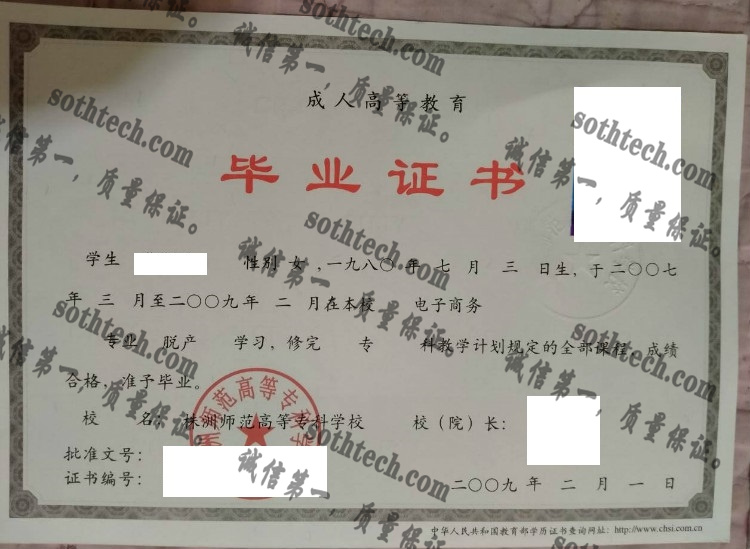 成人高等教育
毕业证书
学生 性别 女 ,一九八〇 年 七 月 三 日生, 于二〇〇七
年 三 月至二〇〇九年 二 月在本校 电子商务
专业 脱产 学习, 修完 专 科教学计划规定的全部课程, 成绩
合格, 准予毕业。
校 名: 株洲师范高等专科学校 校（院）长:
批准文号:
证书编号:
二〇〇九 年 二 月 一 日
中华人民共和国教育部学历证书查询网址: http://www.chsi.com.cn
洲师范高等专科学
sothtech.com
诚信第一, 质量保证。
sothtech.com
诚信第一, 质量保证。
sothtech.com
诚信第一, 质量保证。
sothtech.com
诚信第一, 质量保证。
sothtech.com
诚信第一, 质量保证。
sothtech.com
诚信第一, 质量保证。
sothtech.com
诚信第一, 质量保证。